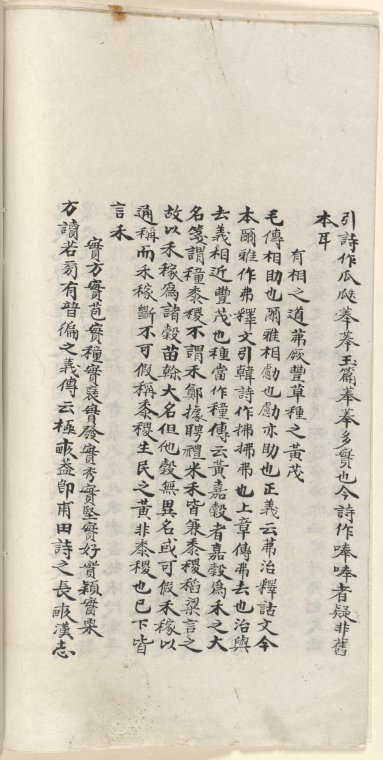 引詩作瓜瓞菶菶玉篇菶菶多實也今詩作唪唪者疑非舊
本耳
有相之道茀厥豐草種之黃茂
毛傳相助也爾雅相勴也勴亦助也正義云茀治釋詁文今
本爾雅作弗釋文引韓詩作拂拂弗也上章傳弗去也治與
去義相近豐茂也種當作穜傳云黃嘉穀者嘉穀爲禾之大
名箋謂穜黍稷不謂禾鄭據聘禮米禾皆兼黍稷稻粱言之
故以禾稼爲諸穀苗榦大名但他穀無異名或可假禾稼以
通稱而禾稼斷不可假稱黍稷生民之黃非黍稷也已下皆
言禾
實方實苞實種實褎實發實秀實堅實好實穎實栗
方讀若旁有普徧之義傳云極畝葢卽甫田詩之長畝漢志